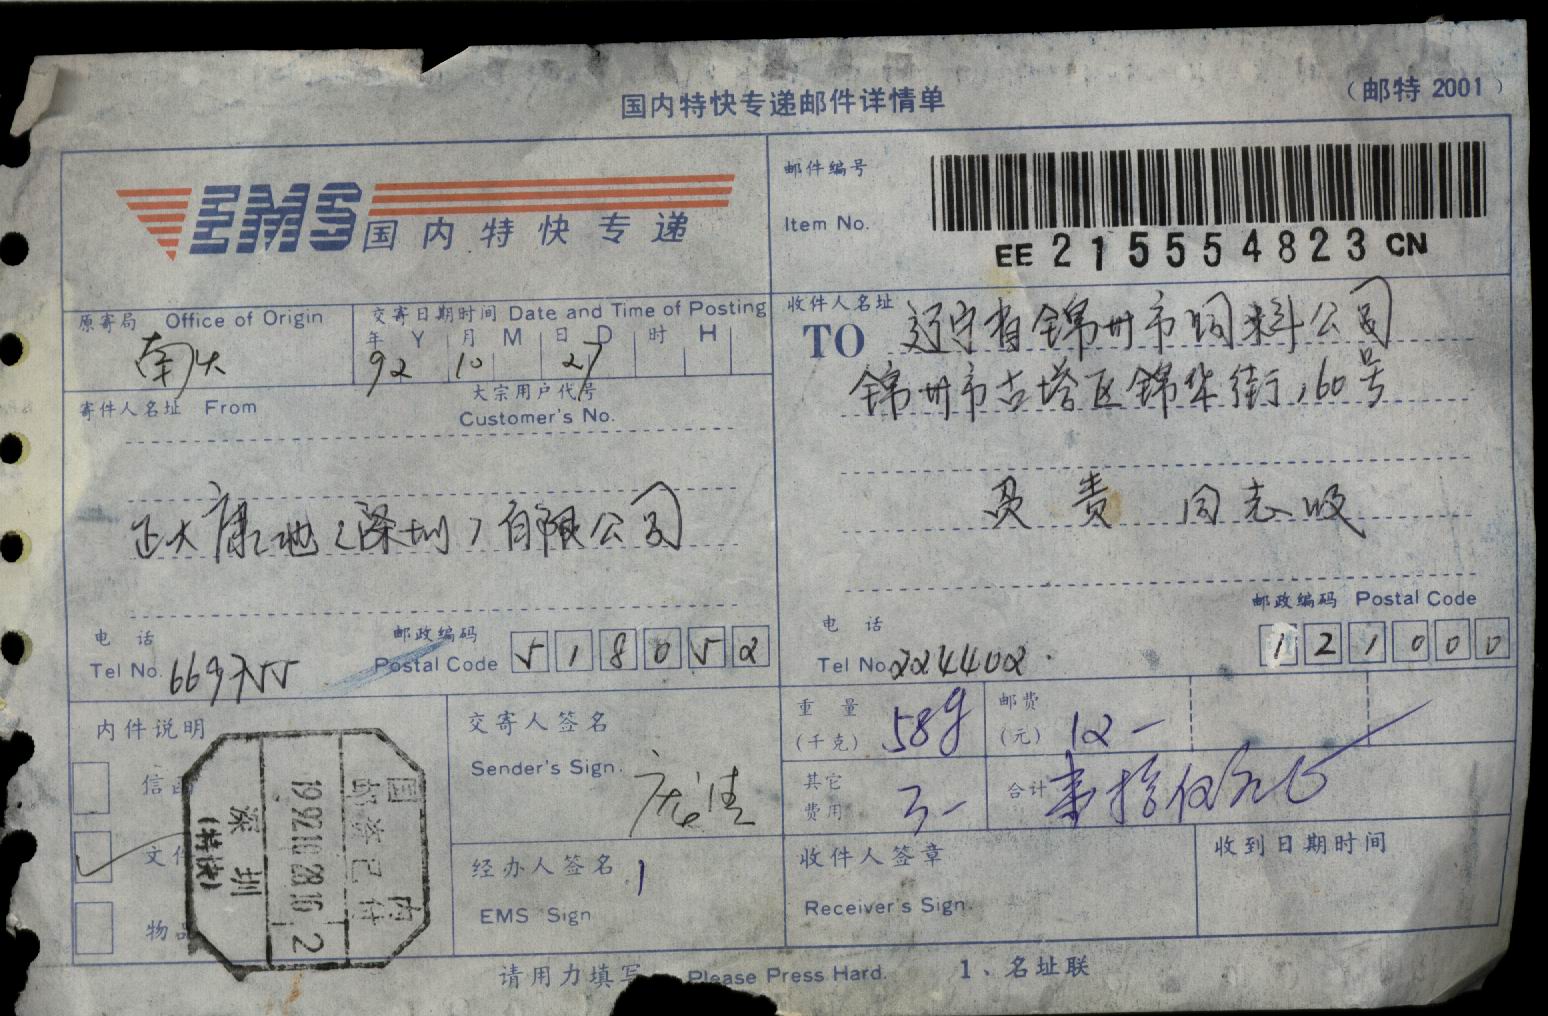 国内特快专递邮件详情单
（邮特 2001）
EMS国内特快专递
邮件编号
Item No.
EE 215554823 CN
原寄局 Office of Origin
南大
交寄日期时间 Date and Time of Posting
年 Y 月 M 日 D 时 H
92 10 27
收件人名址
TO 辽宁省锦州市饲料公司
锦州市古塔区锦华街,60号
寄件人名址 From
大宗用户代号
Customer's No.
正大康地(深圳)有限公司
责 同志收
电话
Tel No. 669755
邮政编码
Postal Code 518052
电话
Tel No. 224402.
邮政编码 Postal Code
121000
内件说明
信函
文件
物品
国内
邮资已付
1992.10.28.16
2
深圳
(特快)
交寄人签名
Sender's Sign.
经办人签名
EMS Sign
重量
(千克)
58g
邮费
(元)
12-
其它
费用
3-
合计
收件人签章
Receiver's Sign.
收到日期时间
请用力填写 Please Press Hard.
1、名址联